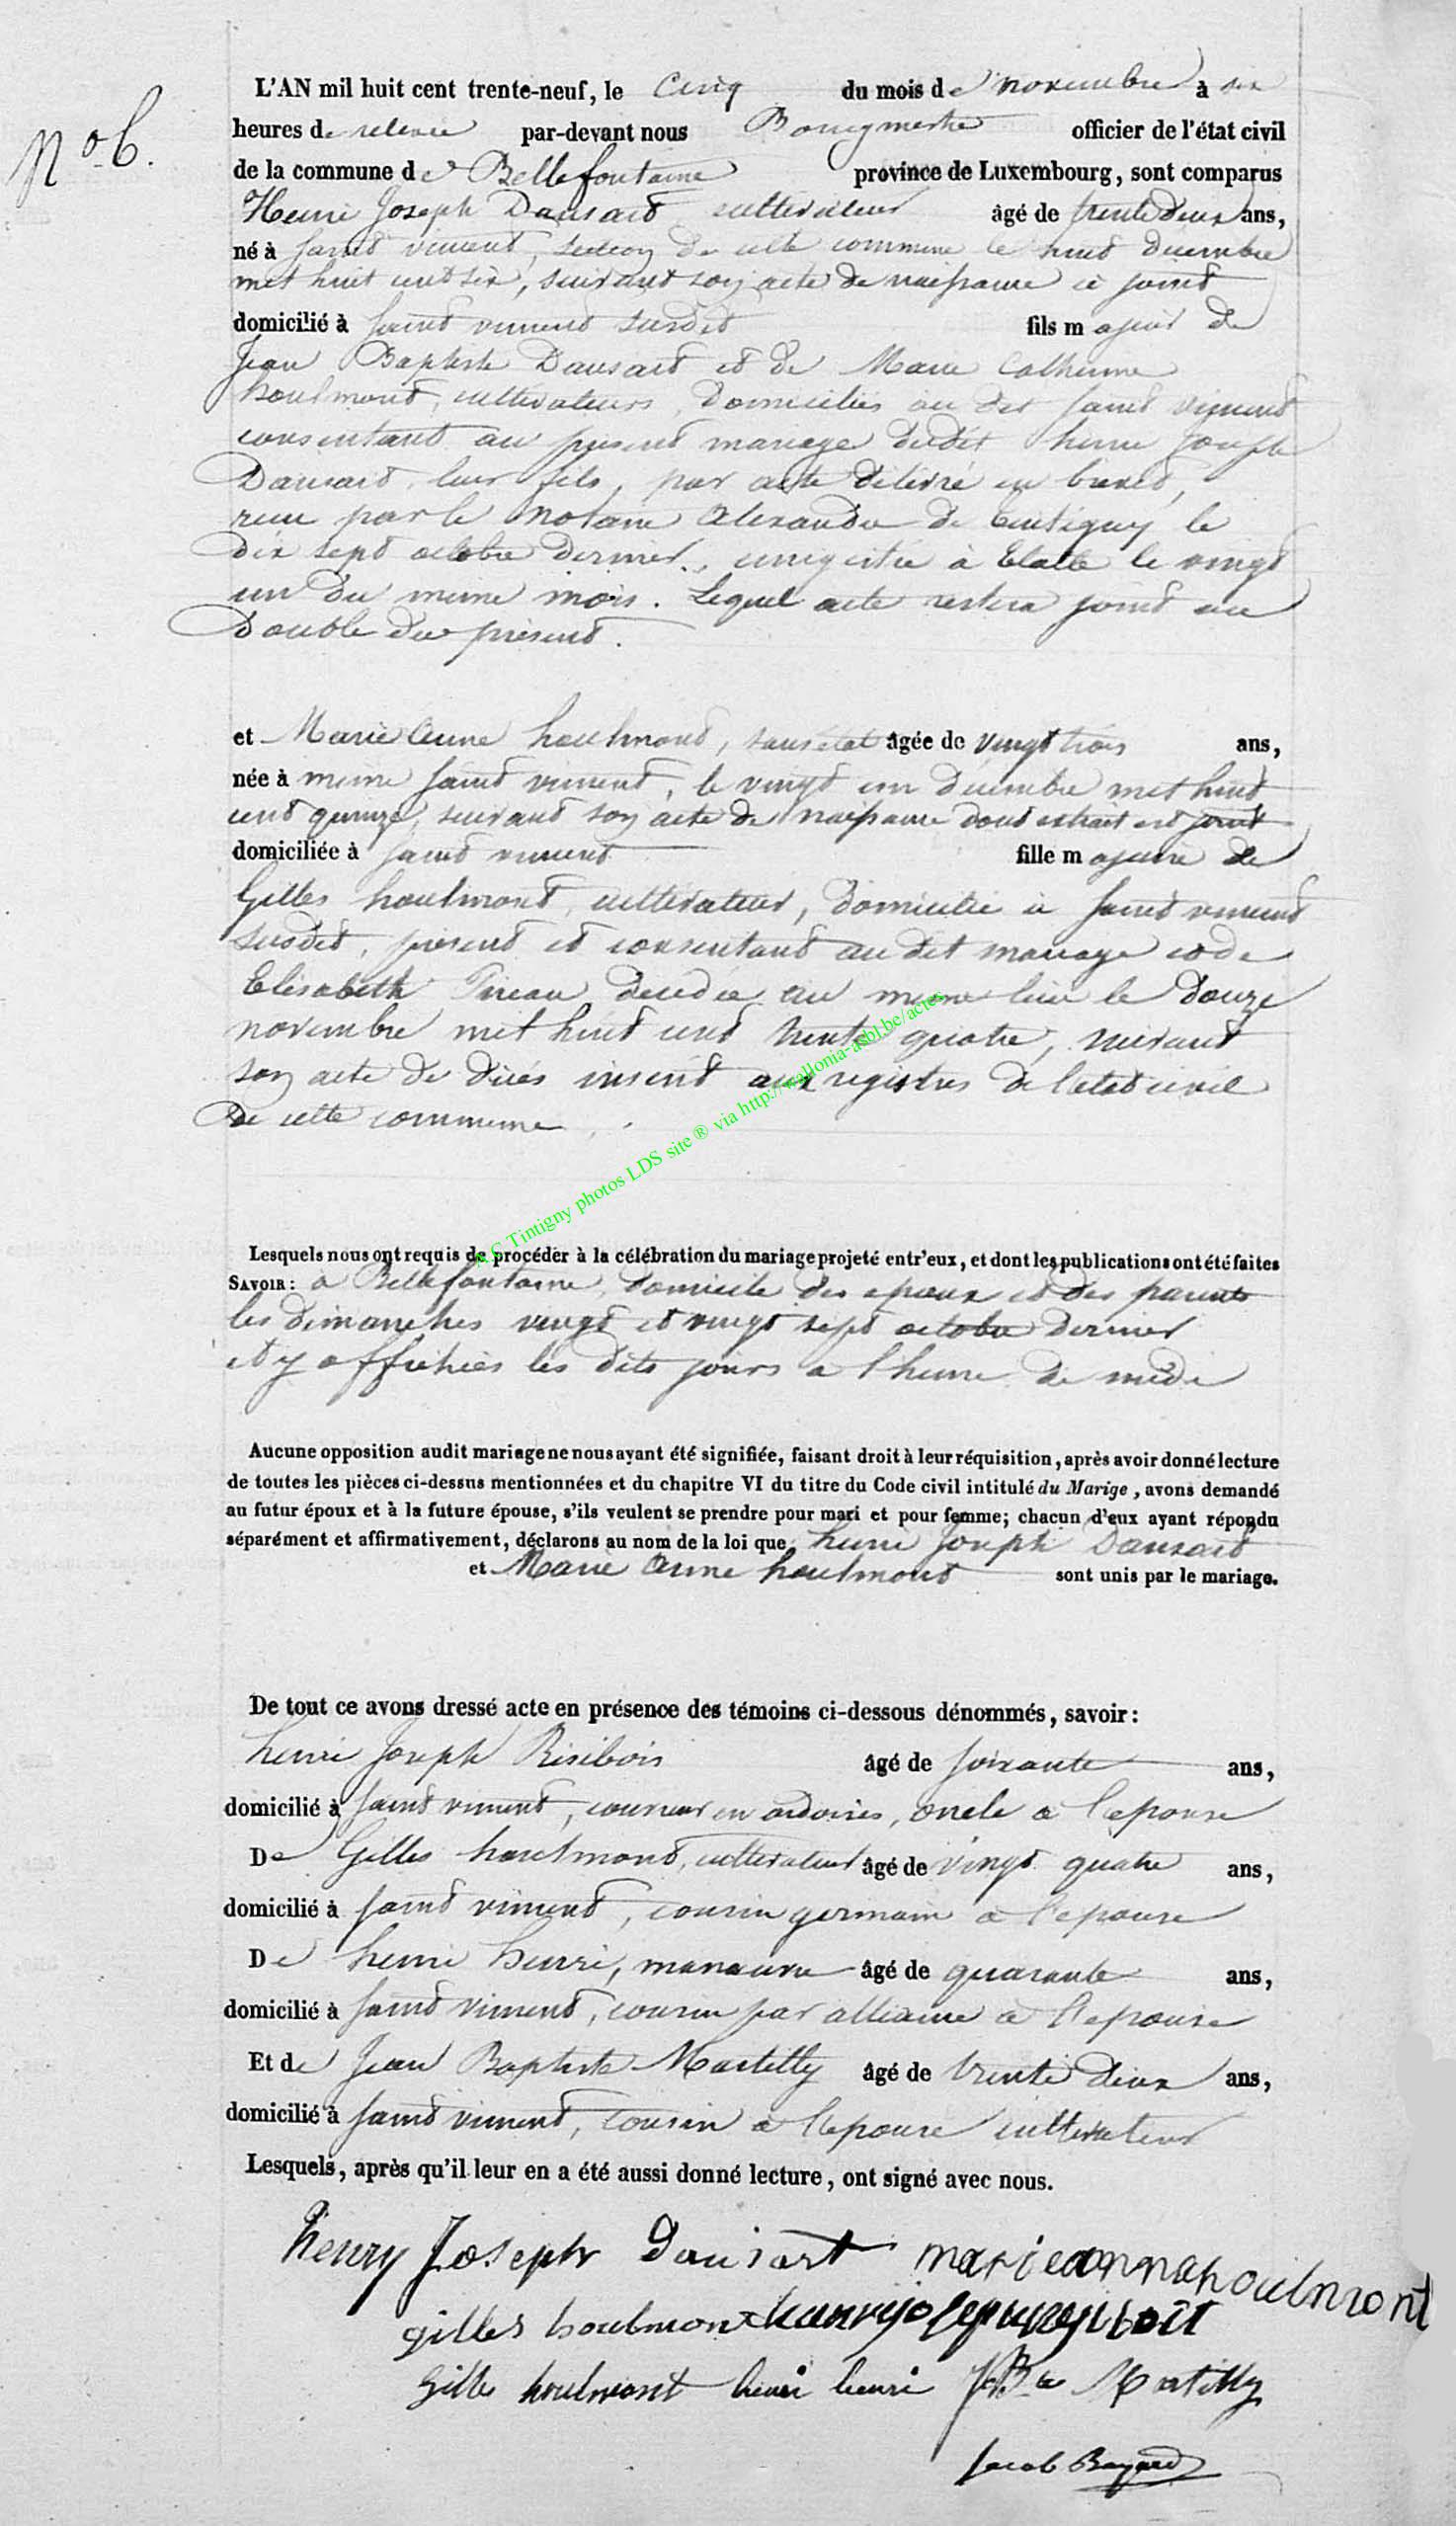 N° 6.
L'AN mil huit cent trente-neuf, le Cinq du mois de novembre à six
heures de relevée par-devant nous Bourgmestre officier de l'état civil
de la commune de Bellefontaine province de Luxembourg, sont comparus
Henri Joseph Dausart cultivateur âgé de trente deux ans,
né à Saint vincent, section de cette commune le huit Decembre
mil huit cent six, suivant son acte de naissance ci joint
domicilié à Saint vincent susdit fils majeur de
Jean Baptiste Dausart et de Marie Catherine
houlmont, cultivateurs, domiciliés au dit Saint vincent
consentant au présent mariage dudit henri Joseph
Dausart leur fils, par acte délivré en brevet,
recu par le Notaire Alexandre de tintigny le
dix sept octobre dernier, enregistré à Etalle le vingt
un du meme mois. Lequel acte restera joint au
Double du présent.
et Marie Anne houlmont, sans état âgée de vingt trois ans,
née à meme Saint vincent, le vingt un Décembre mil huit
cent quinze, suivant son acte de naissance dont extrait est joint
domiciliée à Saint vincent fille majeure de
Gilles houlmont, cultivateur, domicilié à Saint vincent
susdit, présent et consentant au dit mariage et de
Elisabeth Pireau décédée au meme lieu le Douze
novembre mil huit cent trente quatre, suivant
son acte de décès inscrit aux registres de l'etat civil
de cette commune.
A.C Tintigny photos LDS site ® via http://wallonia-asbl.be/actes
Lesquels nous ont requis de procéder à la célébration du mariage projeté entr'eux, et dont les publications ont été faites
SAVOIR: à Bellefontaine, domicile des epoux et des parents
les dimanches vingt et vingt sept octobre dernier
et y affichées les dits jours a l'heure de midi
Aucune opposition audit mariage ne nous ayant été signifiée, faisant droit à leur réquisition, après avoir donné lecture
de toutes les pièces ci-dessus mentionnées et du chapitre VI du titre du Code civil intitulé du Marige, avons demandé
au futur époux et à la future épouse, s'ils veulent se prendre pour mari et pour femme; chacun d'eux ayant répondu
séparément et affirmativement, déclarons au nom de la loi que henri Joseph Dausart
et Marie Anne houlmont sont unis par le mariage.
De tout ce avons dressé acte en présence des témoins ci-dessous dénommés, savoir:
henri Joseph Risibois âgé de soixante ans,
domicilié à Saint vincent, couvreur en ardoises, oncle a l'epouse
De Gilles houlmont, cultivateur âgé de vingt quatre ans,
domicilié à Saint vincent, cousin germain a l'epouse
De henri henri, manœuvre âgé de quarante ans,
domicilié à Saint vincent, cousin par alliance a l'epouse
Et de Jean Baptiste Martilly âgé de trente deux ans,
domicilié à Saint vincent, cousin a l'epouse cultivateur
Lesquels, après qu'il leur en a été aussi donné lecture, ont signé avec nous.
henry Joseph Dausart marie anne houlmont
gilles houlmont
Gille houlmont henri henri J Bte Martilly
Jacob Bayard